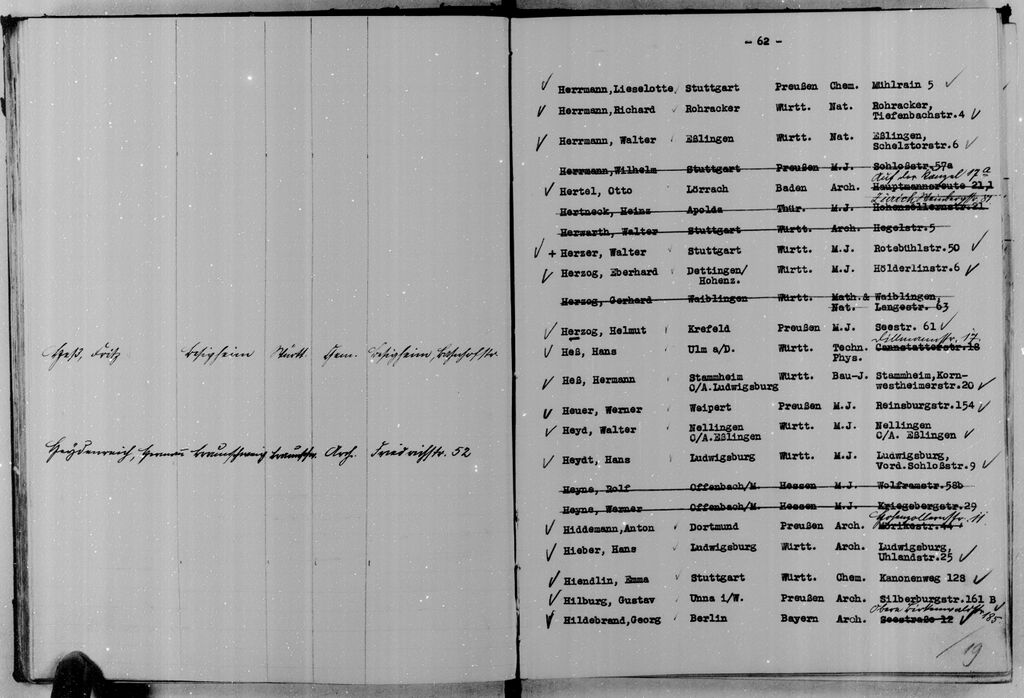 Heß, Fritz Besigheim Württ. Chem. Besigheim, Bahnhofstr.
Heydenreich, Hermann Braunschweig Braunschw. Arch. Friedrichstr. 52
- 62 -
Herrmann,Lieselotte Stuttgart Preußen Chem. Mühlrain 5
Herrmann,Richard Rohracker Württ. Nat. Rohracker,
Tiefenbachstr.4
Herrmann, Walter Eßlingen Württ. Nat. Eßlingen,
Schelztorstr.6
Herrmann,Wilhelm Stuttgart Preußen M.J. Schloßstr.57a
Auf der Kanzel 17a
Hertel, Otto Lörrach Baden Arch. Hauptmannsreute 21,1
Zürich
Hertneck, Heinz Apolda Thür. M.J. Hohenzollernstr.21
Herwarth, Walter Stuttgart Württ. Arch. Hegelstr.5
+ Herzer, Walter Stuttgart Württ. M.J. Rotebühlstr.50
Herzog, Eberhard Dettingen/ Württ. M.J. Hölderlinstr.6
Hohenz.
Herzog, Gerhard Waiblingen Württ. Math.& Waiblingen,
Nat. Langestr. 63
Herzog, Helmut Krefeld Preußen M.J. Seestr. 61
Dillmannstr. 17
Heß, Hans Ulm a/D. Württ. Techn. Cannstatterstr.18
Phys.
Heß, Hermann Stammheim Württ. Bau-J. Stammheim,Korn-
O/A.Ludwigsburg westheimerstr.20
Heuer, Werner Weipert Preußen M.J. Reinsburgstr.154
Heyd, Walter Nellingen Württ. M.J. Nellingen
O/A.Eßlingen O/A. Eßlingen
Heydt, Hans Ludwigsburg Württ. M.J. Ludwigsburg,
Vord.Schloßstr.9
Heyne, Rolf Offenbach/M. Hessen M.J. Wolframstr.58b
Heyne, Werner Offenbach/M. Hessen M.J. Kriegsbergstr.29
Hohenzollernstr. 11
Hiddemann,Anton Dortmund Preußen Arch. Mörikestr.44
Hieber, Hans Ludwigsburg Württ. Arch. Ludwigsburg,
Uhlandstr.25
Hiendlin, Emma Stuttgart Württ. Chem. Kanonenweg 128
Hilburg, Gustav Unna i/W. Preußen Arch. Silberburgstr.161 B
Obere Birkenwaldstr. 185
Hildebrand,Georg Berlin Bayern Arch. Seestraße 12
19